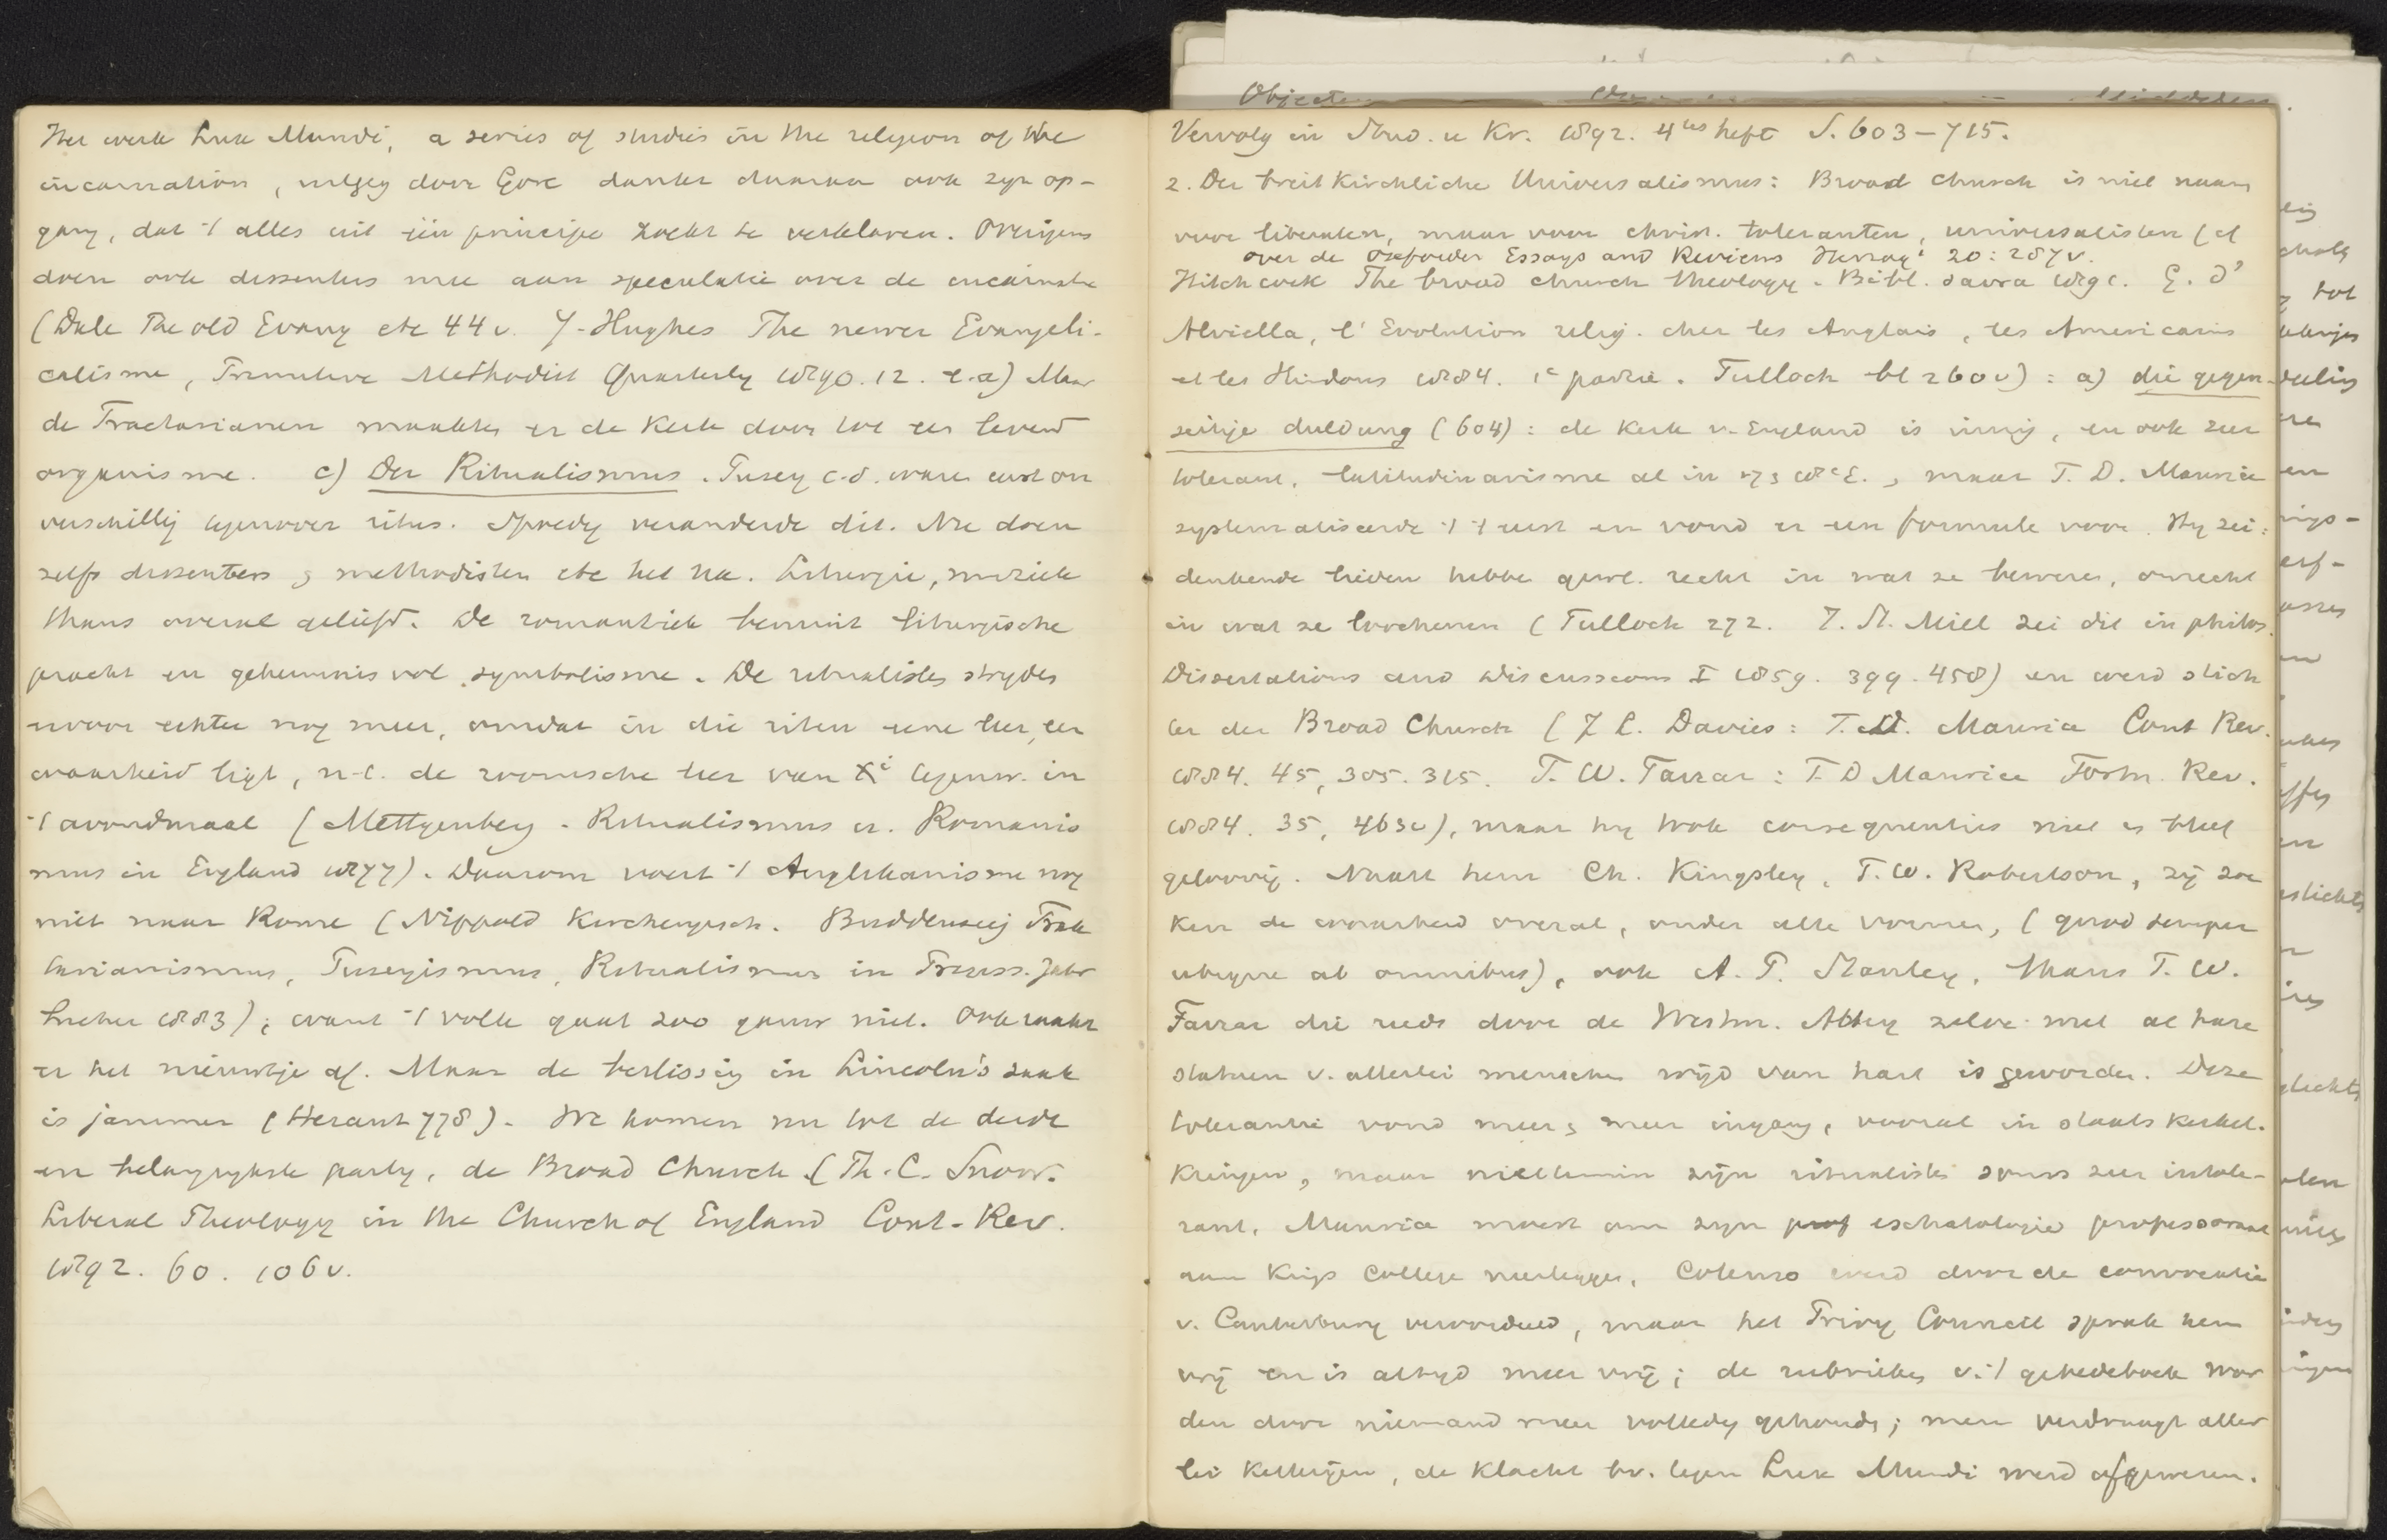 Het werk Lux Mundi, a series of studies in the religion of the
incarnation, uitgeg door Gore dankt daaraan ook zyn op-
gang, dat 't alles uit één principe zoekt te verklaren. Overigens
doen ook dissenters mee aan speculatie over de incarnatie
(Dale The old Evang etc 44v. Hughes The newer Evangeli-
calisme, Primitive Methodist Quarterly 1890. 12. e.a) Maar
de Tractarianen maakten er de Kerk door tot een levend
organisme. c) Der Ritualismus. Pusey c.s. waren eerst on
verschillig tegenover ritus. Spoedig veranderde dit. Nu doen
zelfs dissenters & methodisten etc het na. Liturgie, muziek
thans overal geliefd. De romantiek bemint liturgische
pracht en geheimnisvol symbolisme. De ritualisten strijden
ervoor echter nog meer, omdat in die riten eene leer, een
waarheid ligt, n.l. de roomsche leer van Xi tegenw. in
't avondmaal (Mettgenberg. Ritualismus u. Romanis
mus in England 1877). Daarom voert 't Anglikanisme nog
niet naar Rome (Nippold Kirchengesch. Buddensieg Trak
tarianismus, Puseyismus, Ritualismus in Preuss. Jahr
bucher 1883); want 't volk gaat zoo gauw niet. Ook raakt
er het nieuwtje af. Maar de beslissing in Lincoln's zaak
is jammer (Heraut 778). We komen nu tot de derde
en belangrijkste party, de Broad Church (Th. C. Snow.
Liberal Theology in the Church of England Cont. Rev.
1892. 60. 106v.
Vervolg in Stud. u Kr. 1892. 4tes heft S. 603-715.
2. Der breitkirchliche Universalismus: Broad church is niet naam
voor liberalen, maar voor christ. toleranten, universalisten (cf
over de Oxforder Essays and Reviews Herzog² 20:287v.
Hitchcock The broad church theology. Bibl. sacra 1891. G. d'
Alviella, l'Evolution relig. chez les Anglais, les Americains
et les Hindous 1884. 1e partie. Tulloch bl 260v): a) die gegen-
seitige duldung (604): de Kerk v. Engeland is innig, en ook zeer
tolerant, latitudinarisme al in 17 & 18e E., maar F. D. Maurice
systematiseerde 't 't eerst en vond er een formule voor. Hy zei:
denkende lieden hebben gewl. recht in wat ze beweren, onrecht
in wat ze loochenen (Tulloch 272. J. St. Mill zei dit in philos.
Dissertations and Discussions I 1859. 399. 458) en werd stich
ter der Broad Church (J L. Davies: F. D. Maurice Cont Rev.
1884. 45, 305. 315. F. W. Farrar: F D Maurice Fortn. Rev.
1884. 35, 463v), maar hy trok consequenties niet & bleef
geloovig. Naast hem Ch. Kingsley, F. W. Robertson, zij zoe
ken de waarheid overal, onder alle vormen, (quod semper
ubique ab omnibus), ook A. P. Stanley, thans F. W.
Farrar die reeds door de Westm. Abbey zelve met al hare
statuen v. allerlei menschen wijd van hart is geworden. Deze
tolerantie vond meer & meer ingang, vooral in staatskerkel.
Kringen, maar niettemin zijn ritualisten soms zeer intole-
rant. Maurice moest om zyn eschatologie professoraat
aan Kings College neerleggen, Colenso werd door de convocatie
v. Canterbury veroordeeld, maar het Privy Council sprak hem
vrij en is altyd meer vrij; de rubrieken v. 't gebedeboek wor
den door niemand meer volledig gehouden; men verdraagt aller
lei Ketterijen, de Klacht bv. tegen Lux Mundi werd afgewezen.